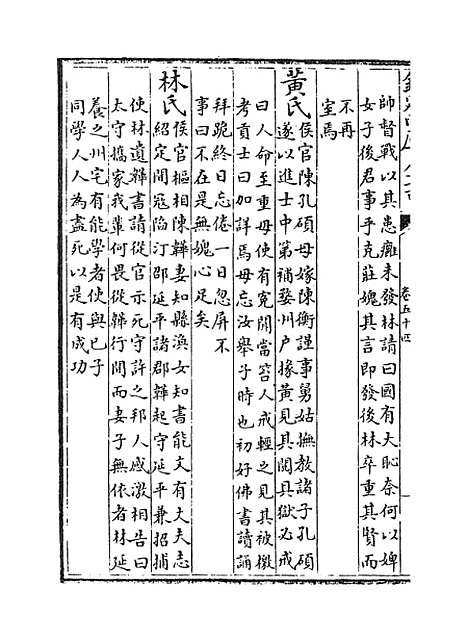 卷五十四
帥督戰以其患癰未發林請曰國有大恥奈何以婢
女子後君事乎克莊媿其言即發後林卒重其賢而
不再
室焉
黃氏
侯官陳孔碩母嫁陳衡謹事舅姑撫教諸子孔碩
遂以進士中第補婺州户掾黃見其閱具獄必戒
曰人命至重毋使有寃聞當容人戒輕之見其被檄
考貢士曰加詳焉毋忘汝舉子時也初好佛書讀誦
拜跪終日忘倦一日忽屏不
事曰不在是無媿心足矣
林氏
侯官樞相陳韡妻知縣渙女知書能文有丈夫志
紹定間寇陷汀邵延平諸郡韡起守延平兼招捕
使林遺韡書請從官示死守許之邦人感激相告曰
太守攜家我輩何畏從韡行間而妻子無依者林延
養之州宅有能學者使與己子
同學人人為盡死以是有成功